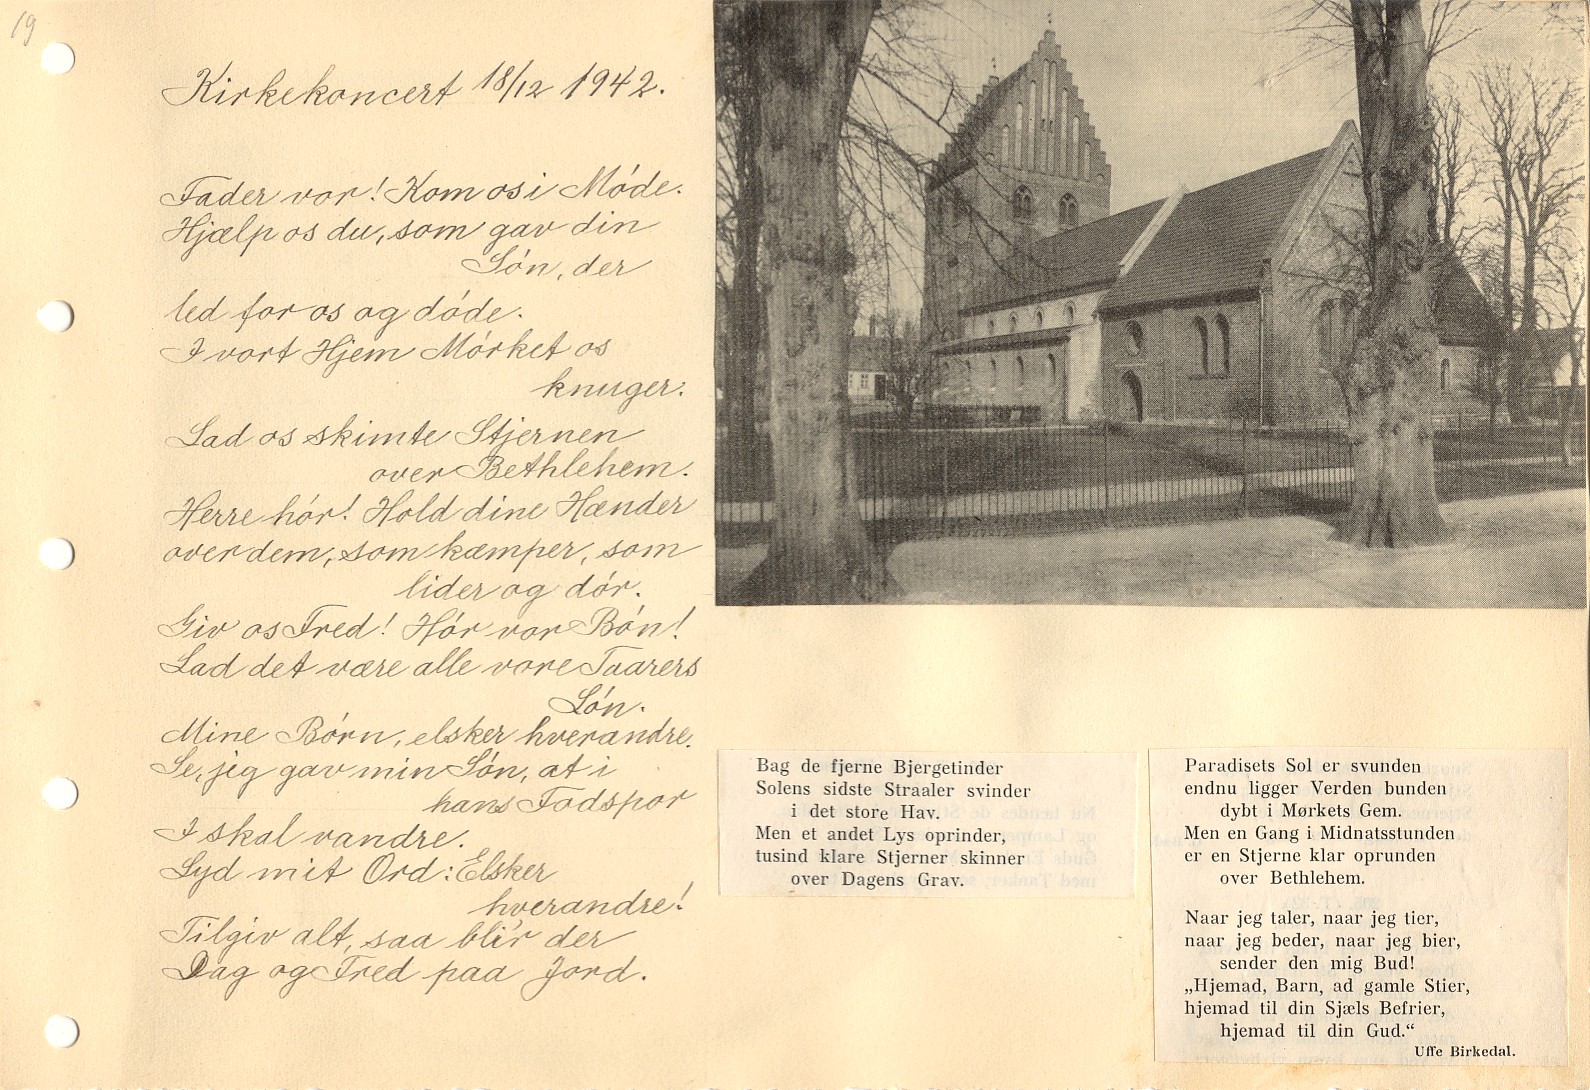 19
Kirkekoncert 18/12 1942.
Fader vor! Kom os i Møde.
Hjælp os du, som gav din
Søn, der
led for os og døde.
I vort Hjem Mørket os
knuger:
Lad os skimte Stjernen
over Bethlehem.
Herre hør! Hold dine Hænder
over dem, som kæmper, som
lider og dør.
Giv os Fred! Hør vor Bøn!
Lad det være alle vore Taarers
Løn.
Mine Børn, elsker hverandre.
Se, jeg gav min Søn, at i
hans Fodspor
I skal vandre.
Lyd mit Ord: Elsker
hverandre!
Tilgiv alt, saa bli'r der
Dag og Fred paa Jord.
Bag de fjerne Bjergetinder
Solens sidste Straaler svinder
i det store Hav.
Men et andet Lys oprinder,
tusind klare Stjerner skinner
over Dagens Grav.
Paradisets Sol er svunden
endnu ligger Verden bunden
dybt i Mørkets Gem.
Men en Gang i Midnatsstunden
er en Stjerne klar oprunden
over Bethlehem.
Naar jeg taler, naar jeg tier,
naar jeg beder, naar jeg bier,
sender den mig Bud!
„Hjemad, Barn, ad gamle Stier,
hjemad til din Sjæls Befrier,
hjemad til din Gud.“
Uffe Birkedal.